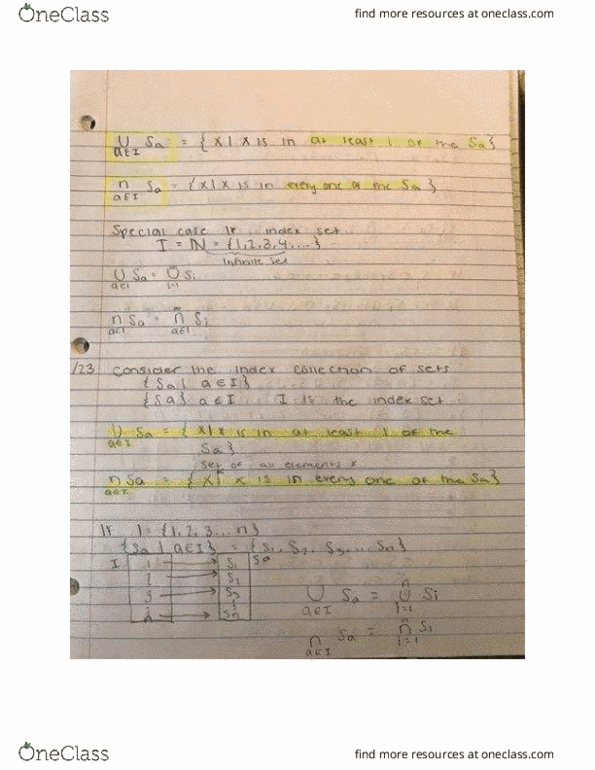 OneClass
find more resources at oneclass.com
∪ Sa = { x | x is in at least 1 of the Sa }
a∈I
∩ Sa = { x | x is in every one of the Sa }
a∈I
Special case If index set
I = ℕ = { 1, 2, 3, 4, .... }
Infinite set
∪ Sa = ∪ Si
a∈I i=1
∩ Sa = ∩ Si
a∈I a∈I
/23 Consider the index collection of sets
{ Sa | a ∈ I }
{ Sa } a ∈ I I is the index set
∪ Sa = { x | x is in at least 1 of the
a∈I
Sa }
set of all elements x
∩ Sa = { x | x is in every one of the Sa }
a∈I
If I = { 1, 2, 3 ... n }
{ Sa | a ∈ I } = { S1, S2, S3, ... Sn }
I 1 → S1 Sa
2 → S2
3 → S3
→ Sn
n
∪ Sa = ∪ Si
a∈I i=1
n
∩ Sa = ∩ Si
a∈I i=1
OneClass
find more resources at oneclass.com